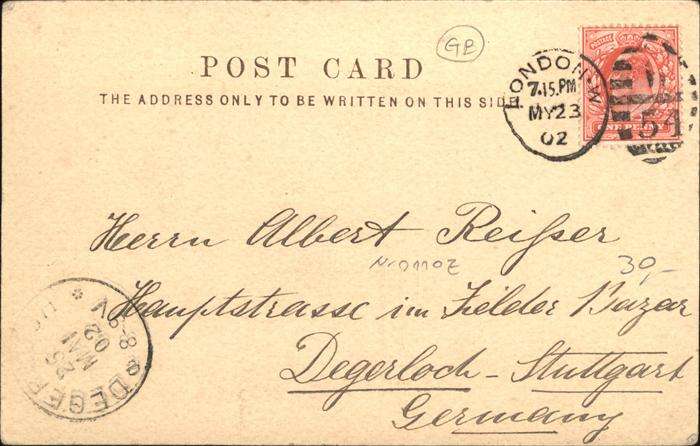 GB
POST CARD
THE ADDRESS ONLY TO BE WRITTEN ON THIS SIDE
LONDON·W
7.15.PM
MY23
02
ONE PENNY
54
Herrn Albert Reißer
30,-
Hauptstrasse im Filder Bazar
Degerloch-Stuttgart
Germany
DEGER
25
MAI
02
8-9V